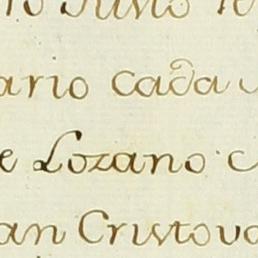 ario cada
e Lozano. C
an Cristova